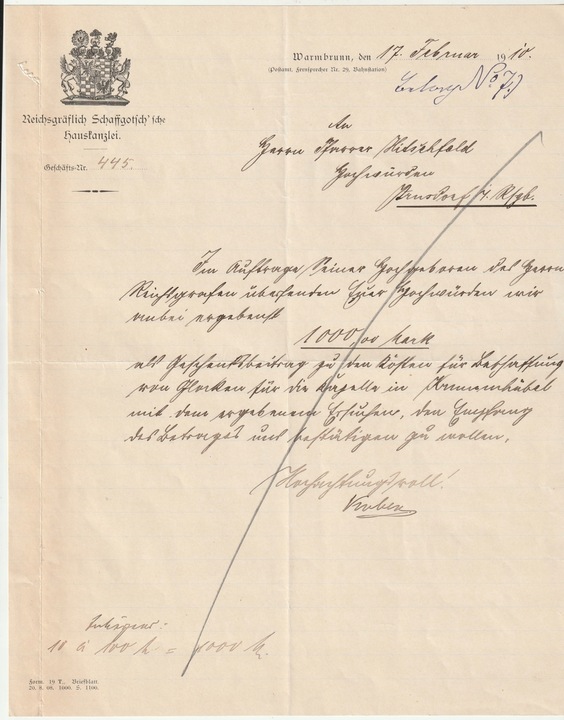 Warmbrunn, den 17. Februar 1910.
(Postamt, Fernsprecher Nr. 29, Bahnstation)
Beleg No 7.)
Reichsgräflich Schaffgotsch'sche
Hauskanzlei.
Geschäfts-Nr. 445.
An
Herrn Pfarrer Hitschfeld
Hochwürden
Arnsdorf i. Rsgb.
Im Auftrage Seiner Hochgeboren des Herrn
Reichsgrafen übersenden Euer Hochwürden wir
anbei ergebenst
1000,00 Mark
als Geschenksbeitrag zu den Kosten für Beschaffung
von Glocken für die Kapelle in
mit dem ergebenen Ersuchen, den Empfang
des Betrages uns bestätigen zu wollen.
Hochachtungsvoll!
10 à 100 M = 1000 M.
Form. 19 T., Briefblatt
20. 8. 08. 1000. S. 1100.